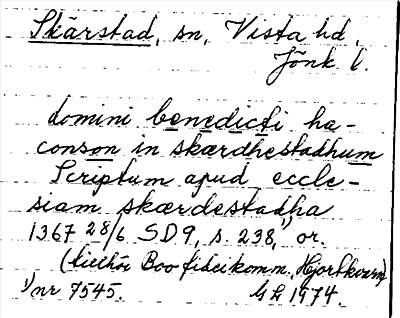 Skärstad, sn, Vista hd,
Jönk l.
domini benedicti ha-
conson in skærdhestadhum
Scriptum apud eccle-
siam skærdestadha
1367 28/6 SD9, s. 238,¹⁾ or.
(tillhör Boo fideikomm. Hjortkvarn)
¹⁾nr 7545. GL 1974.